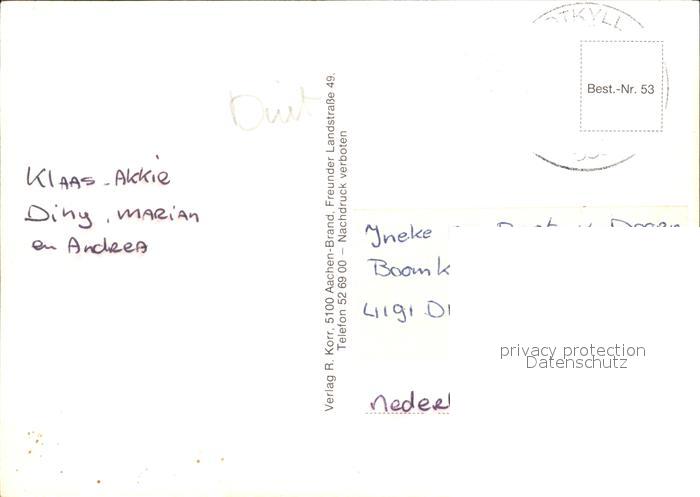 TKYLL
Best.-Nr. 53
Klaas - Akkie
Diny, Marian
en Andrea
Verlag R. Korr, 5100 Aachen-Brand, Freunder Landstraße 49.
Telefon 52 69 00 – Nachdruck verboten
Yneke
Boomk
4191 D
neder
privacy protection
Datenschutz